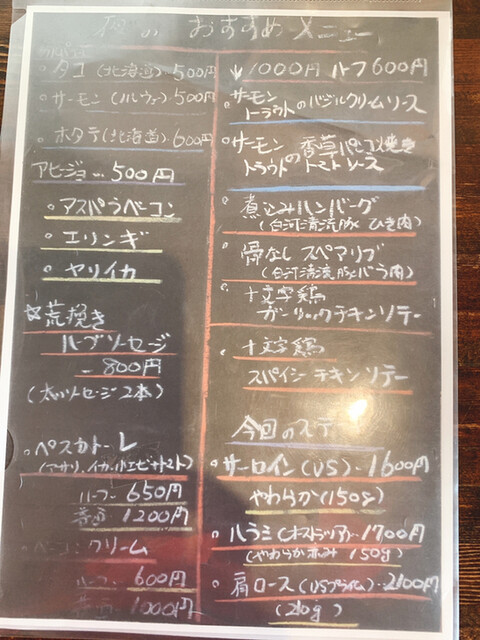 夜の おすすめメニュー
カルパッチョ
・タコ(北海道)500円
・サーモン(ノルウェー)500円
・ホタテ(北海道)600円
アヒージョ… 500円
・アスパラベーコン
・エリンギ
・ヤリイカ
荒挽き
ハーブソーセージ
800円
(太いソーセージ2本)
・ペスカトーレ
(アサリ、イカ、小エビ、トマト)
ハーフ… 650円
普通 1200円
・ベーコンクリーム
ハーフ… 600円
普通… 1000円
↓1000円 ハーフ600円
・サーモン
トラウトのバジルクリームソース
・サーモン
トラウトの香草パン粉焼き
トマトソース
・煮込みハンバーグ
(白河清流豚ひき肉)
・骨なしスペアリブ
(白河清流豚バラ肉)
・十文字鶏
ガーリックチキンソテー
・十文字鶏
スパイシーチキンソテー
今回のステーキ
・サーロイン(US)…1600円
やわらか(150g)
・ハラミ(オーストラリア)…1700円
(やわらか赤み 150g)
・肩ロース(USプライム)…2100円
(210g)